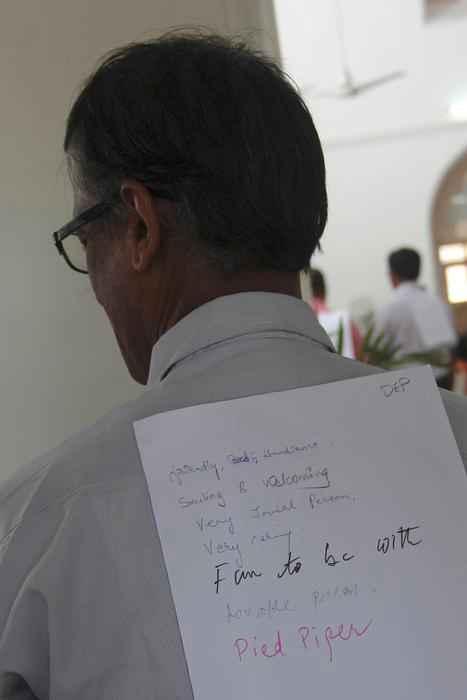 DEP
friendly, handsome.
Smiling & Welcoming
Very Jovial Person.
Very
Fun to be with
Lovable person.
Pied Piper